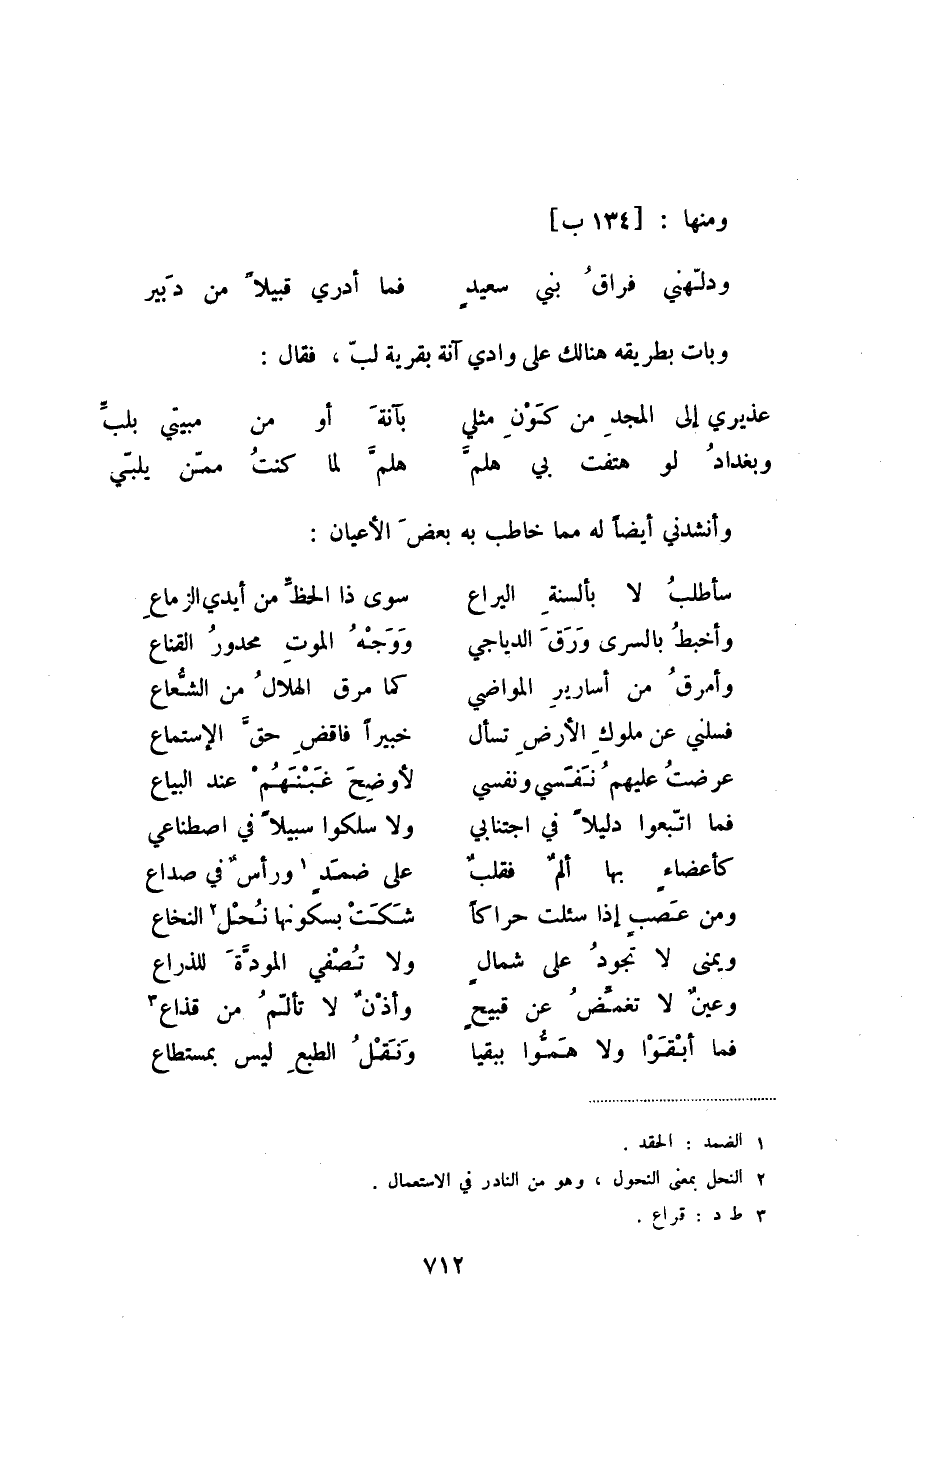 ومنها : [١٣٤ ب]
ودلّهني فراقُ بني سعيدٍ فما أدري قبيلاً من دَبير
وبات بطريقه هنالك على وادي آنة بقرية لبّ ، فقال :
عذيري إلى المجدِ من كَوْنِ مثلي بآنةَ أو من مبيتي بلبِّ
وبغدادُ لو هتفت بي هلمَّ هلمَّ لما كنتُ ممّن يلبّي
وأنشدني أيضاً له مما خاطب به بعضَ الأعيان :
سأطلبُ لا بألسنةِ اليراع سوى ذا الحظِّ من أيدي الزماعِ
وأخبطُ بالسرى وَرَقَ الدياجي وَوَجْهُ الموتِ محدورُ القناع
وأمرقُ من أساريرِ المواضي كما مرق الهلالُ من الشُّعاع
فسلني عن ملوكِ الأرضِ تسأل خبيراً فاقضِ حقَّ الإستماع
عرضتُ عليهمُ نَفَسي ونفسي لأوضِحَ غَبْنَهُمْ عند البياع
فما اتّبعوا دليلاً في اجتنابي ولا سلكوا سبيلاً في اصطناعي
كأعضاءٍ بها ألمٌ فقلبٌ على ضمَدٍ١ ورأسٌ في صداع
ومن عَصبٍ إذا سئلت حراكاً شَكَتْ بسكونها نُحْلَ٢ النخاع
ويمنى لا تجودُ على شمالٍ ولا تُصْفي المودَّةَ للذراع
وعينٌ لا تغمّضُ عن قبيحٍ وأذْنٌ لا تألّمُ من قذاع٣
فما أبْقَوْا ولا هَمُّوا ببقيا وَنَقْلُ الطبعِ ليس بمستطاع
١ الضمد : الحقد .
٢ النحل بمعنى النحول ، وهو من النادر في الاستعمال .
٣ ط د : قراع .
٧١٢